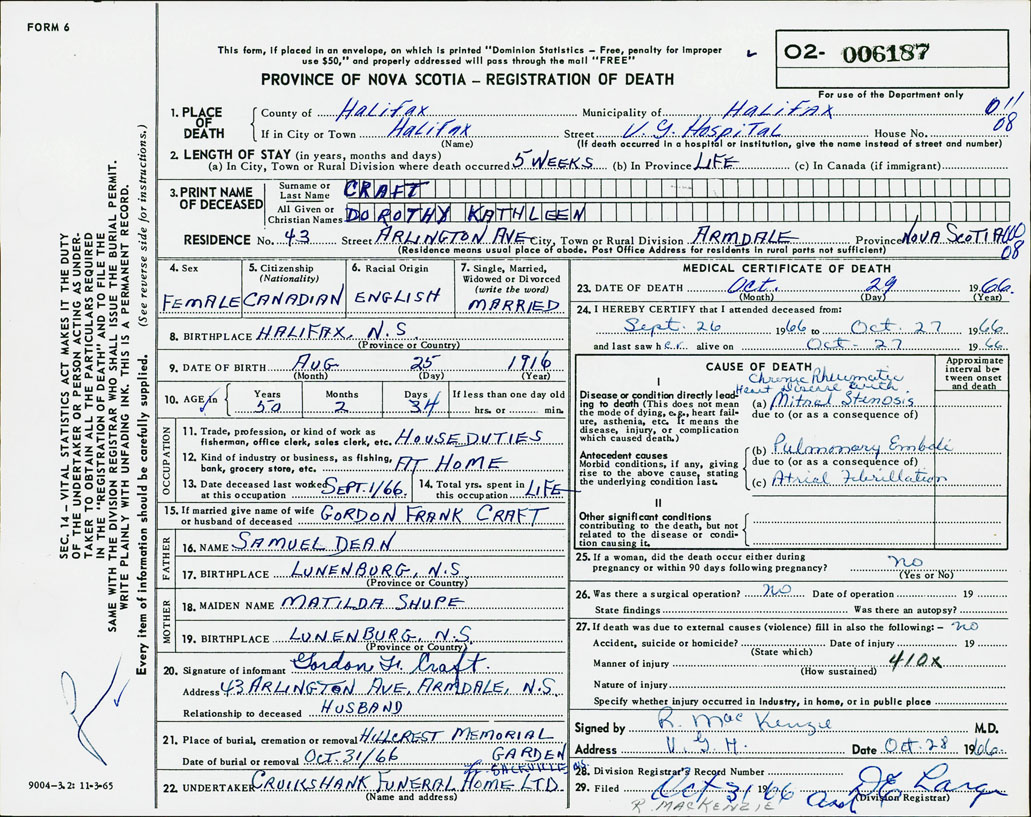 FORM 6
This form, if placed in an envelope, on which is printed "Dominion Statistics – Free, penalty for improper
use $50," and properly addressed will pass through the mail "FREE"
O2- 006187
PROVINCE OF NOVA SCOTIA – REGISTRATION OF DEATH
For use of the Department only
1. PLACE OF DEATH
County of Halifax Municipality of Halifax 011
If in City or Town Halifax Street V. G. Hospital House No. 08
(Name) (If death occurred in a hospital or institution, give the name instead of street and number)
2. LENGTH OF STAY (in years, months and days)
(a) In City, Town or Rural Division where death occurred 5 WEEKS (b) In Province LIFE (c) In Canada (if immigrant)
3. PRINT NAME OF DECEASED
Surname or Last Name CRAFT
All Given or Christian Names DOROTHY KATHLEEN
RESIDENCE No. 43 Street ARLINGTON AVE City, Town or Rural Division ARMDALE Province NOVA SCOTIA
(Residence means usual place of abode. Post Office Address for residents in rural parts not sufficient) 08
4. Sex FEMALE
5. Citizenship (Nationality) CANADIAN
6. Racial Origin ENGLISH
7. Single, Married, Widowed or Divorced (write the word) MARRIED
8. BIRTHPLACE HALIFAX, N.S.
(Province or Country)
9. DATE OF BIRTH AUG 25 1916
(Month) (Day) (Year)
10. AGE in Years 50 Months 2 Days 34 If less than one day old hrs. or min.
OCCUPATION
11. Trade, profession, or kind of work as
fisherman, office clerk, sales clerk, etc. HOUSE DUTIES
12. Kind of industry or business, as fishing,
bank, grocery store, etc. AT HOME
13. Date deceased last worked at this occupation SEPT. 1/66. 14. Total yrs. spent in this occupation LIFE
15. If married give name of wife
or husband of deceased GORDON FRANK CRAFT
FATHER
16. NAME SAMUEL DEAN
17. BIRTHPLACE LUNENBURG, N.S
(Province or Country)
MOTHER
18. MAIDEN NAME MATILDA SHUPE
19. BIRTHPLACE LUNENBURG, N.S.
(Province or Country)
20. Signature of informant Gordon F. Craft.
Address 43 ARLINGTON AVE, ARMDALE, N.S.
Relationship to deceased HUSBAND
21. Place of burial, cremation or removal HILLCREST MEMORIAL
Date of burial or removal Oct. 31/66 GARDEN
SACKVILLE N.S.
22. UNDERTAKER CRUIKSHANK FUNERAL HOME LTD.
(Name and address)
MEDICAL CERTIFICATE OF DEATH
23. DATE OF DEATH Oct. 29 1966.
(Month) (Day) (Year)
24. I HEREBY CERTIFY that I attended deceased from:
Sept. 26 1966 to Oct. 27 1966
and last saw her alive on Oct-27 1966
CAUSE OF DEATH
Approximate interval between onset and death
I
Chronic Rheumatic
Heart Disease with
Disease or condition directly leading to death (This does not mean the mode of dying, e.g., heart failure, asthenia, etc. It means the disease, injury, or complication which caused death.)
(a) Mitral Stenosis
due to (or as a consequence of)
Antecedent causes
Morbid conditions, if any, giving rise to the above cause, stating the underlying condition last.
(b) Pulmonary Emboli
due to (or as a consequence of)
(c) Atrial Fibrillation
II
Other significant conditions
contributing to the death, but not related to the disease or condition causing it.
25. If a woman, did the death occur either during
pregnancy or within 90 days following pregnancy? no
(Yes or No)
26. Was there a surgical operation? no Date of operation 19
State findings Was there an autopsy?
27. If death was due to external causes (violence) fill in also the following: – no
Accident, suicide or homicide? Date of injury 19
(State which)
Manner of injury 410x
(How sustained)
Nature of injury
Specify whether injury occurred in Industry, in home, or in public place
Signed by R. MacKenzie M.D.
Address V. G. H. Date Oct. 28 1966.
28. Division Registrar's Record Number
29. Filed Oct 31 1966
(Division Registrar)
R. MACKENZIE
SEC. 14 – VITAL STATISTICS ACT MAKES IT THE DUTY
OF THE UNDERTAKER OR PERSON ACTING AS UNDER-
TAKER TO OBTAIN ALL THE PARTICULARS REQUIRED
IN THE "REGISTRATION OF DEATH" AND TO FILE THE
SAME WITH THE DIVISION REGISTRAR WHO SHALL ISSUE THE BURIAL PERMIT.
WRITE PLAINLY WITH UNFADING INK. THIS IS A PERMANENT RECORD.
Every item of information should be carefully supplied. (See reverse side for instructions.)
9004-3.2: 11-3-65